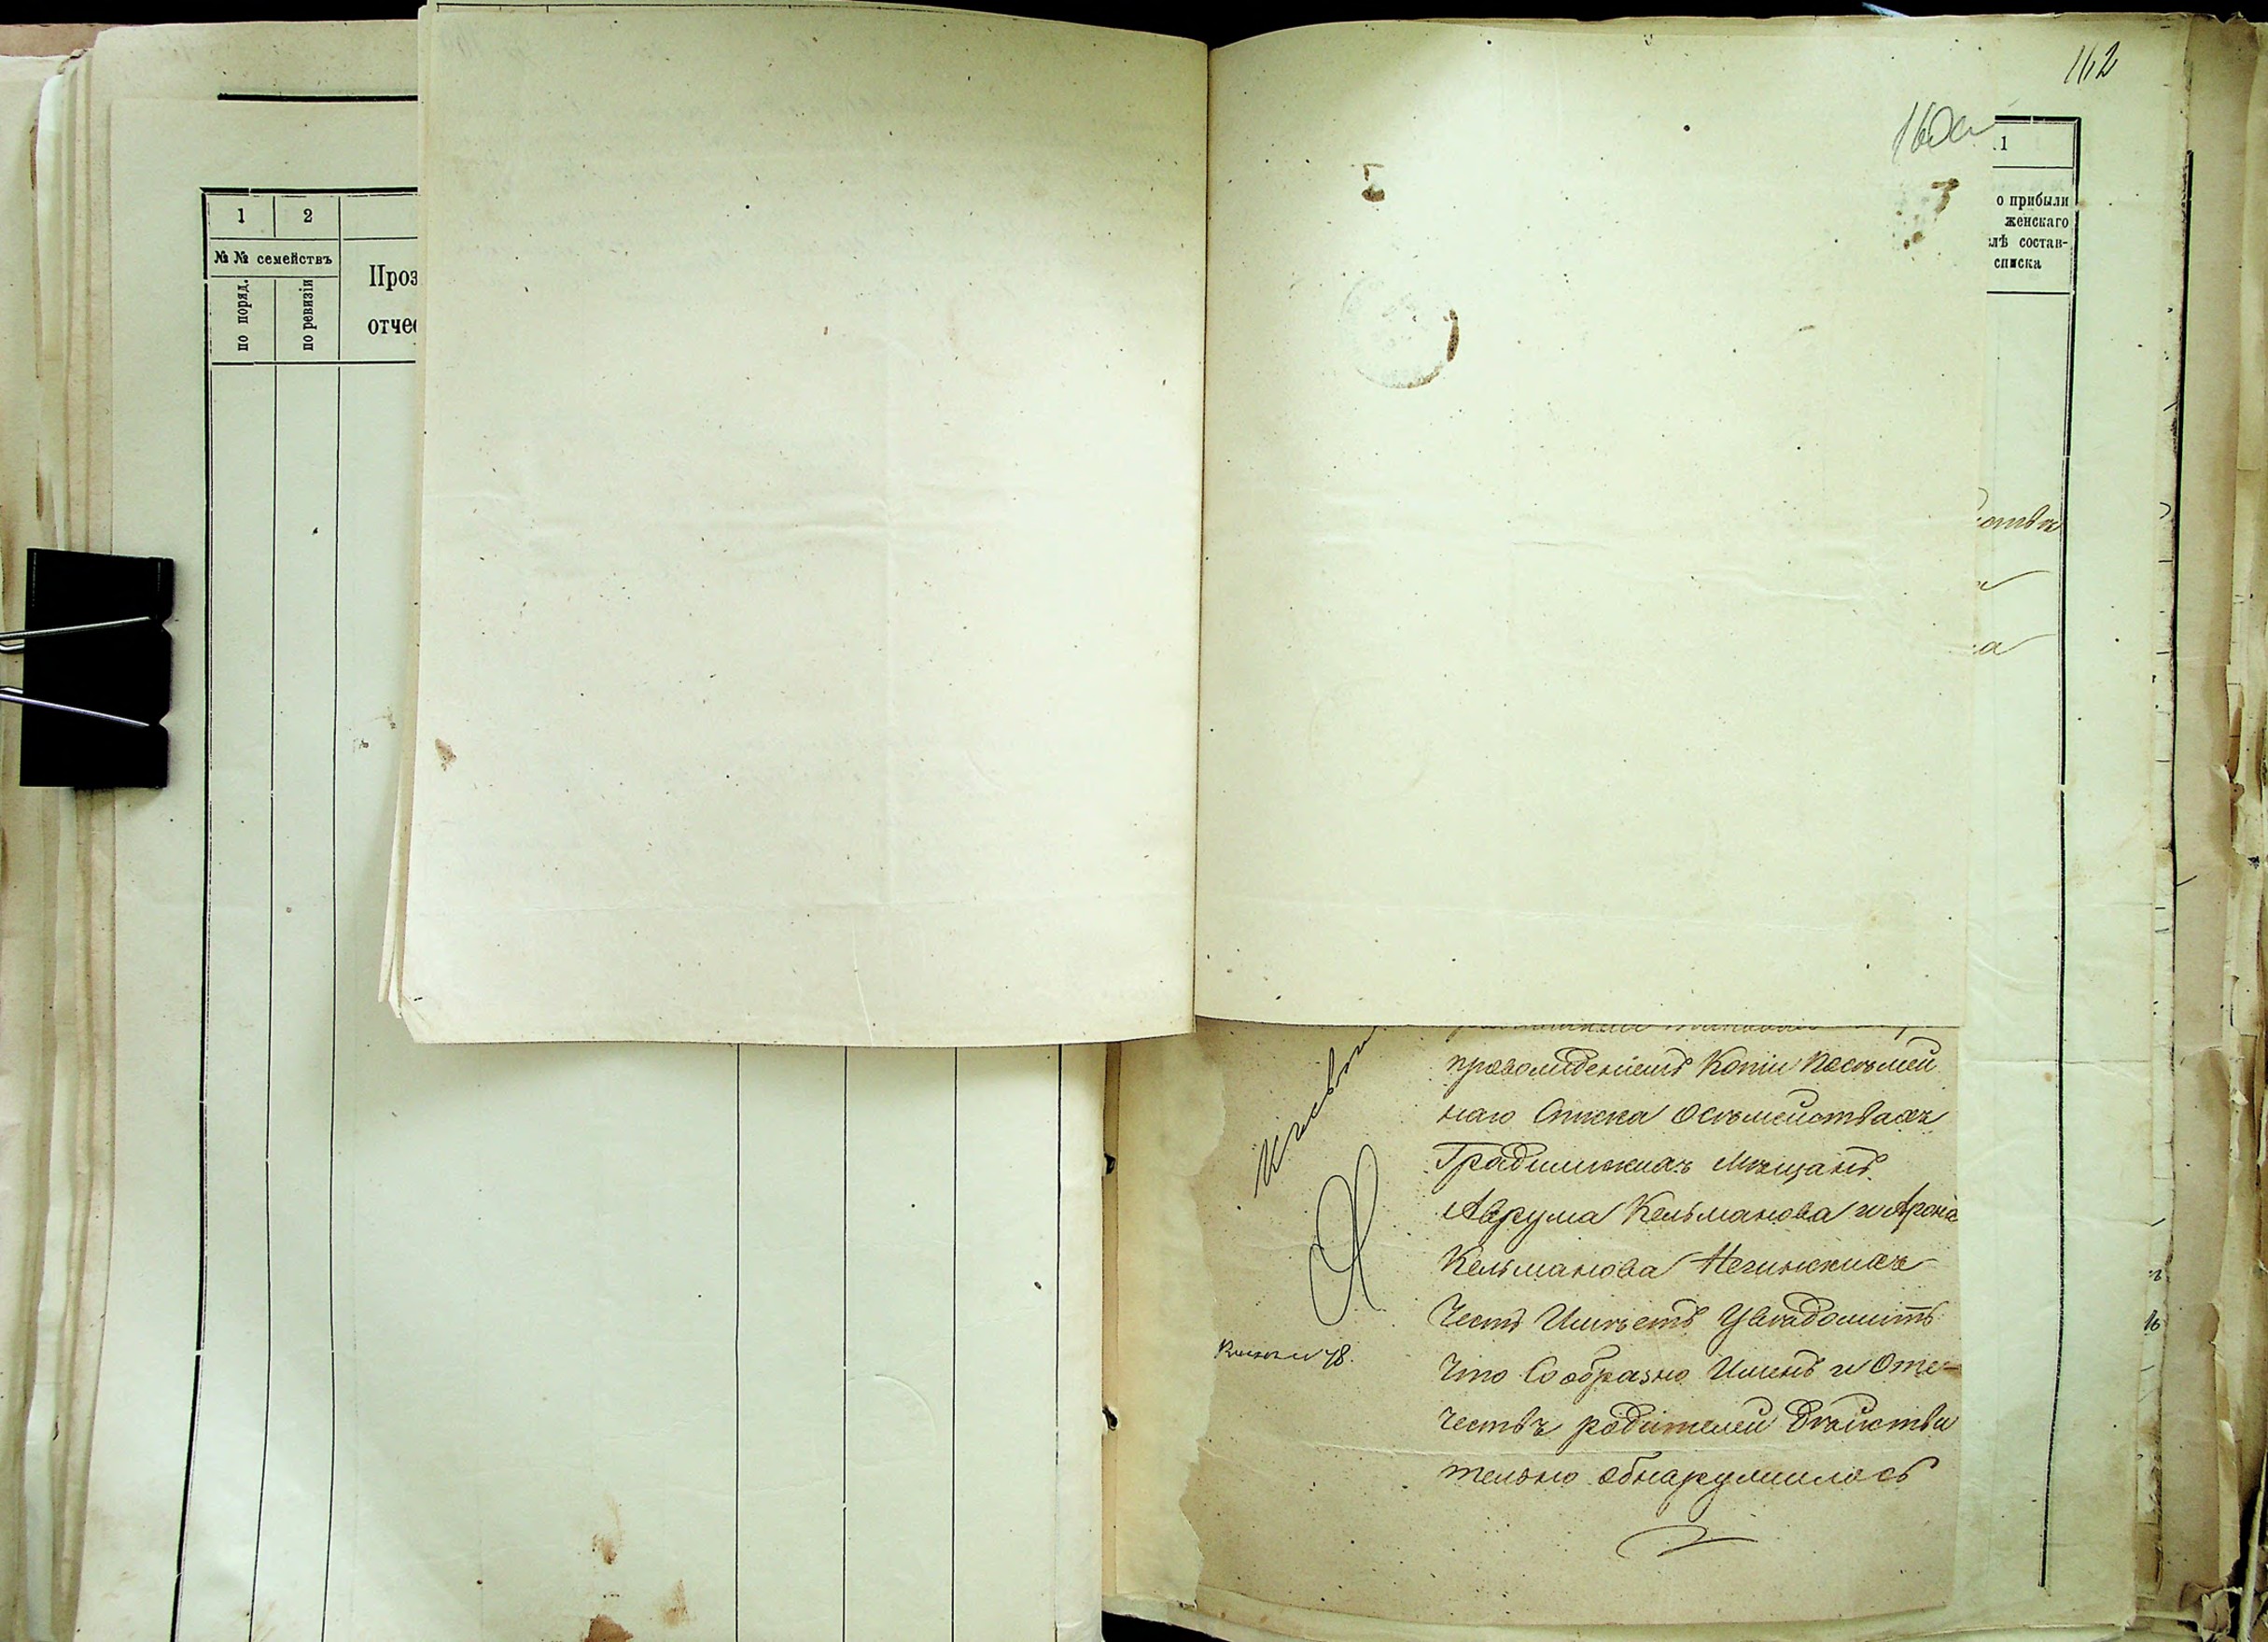 162
160а
1
2
№ № семействъ
по поряд.
по ревизіи
Проз
отчес
.1
о прибыли
женскаго
лѣ состав-
списка
препровожденіемъ Копіи Посѣмей
наго Списка Осѣмействахъ
Градижскихъ Мѣщанъ
Аврума Кельманова и Арона
Кельманова Негинскихъ
Честь Имѣетъ Увѣдомить
Что Сообразно Именъ и Оте-
чествъ родителей Дѣйстви
тельно обнаружилось